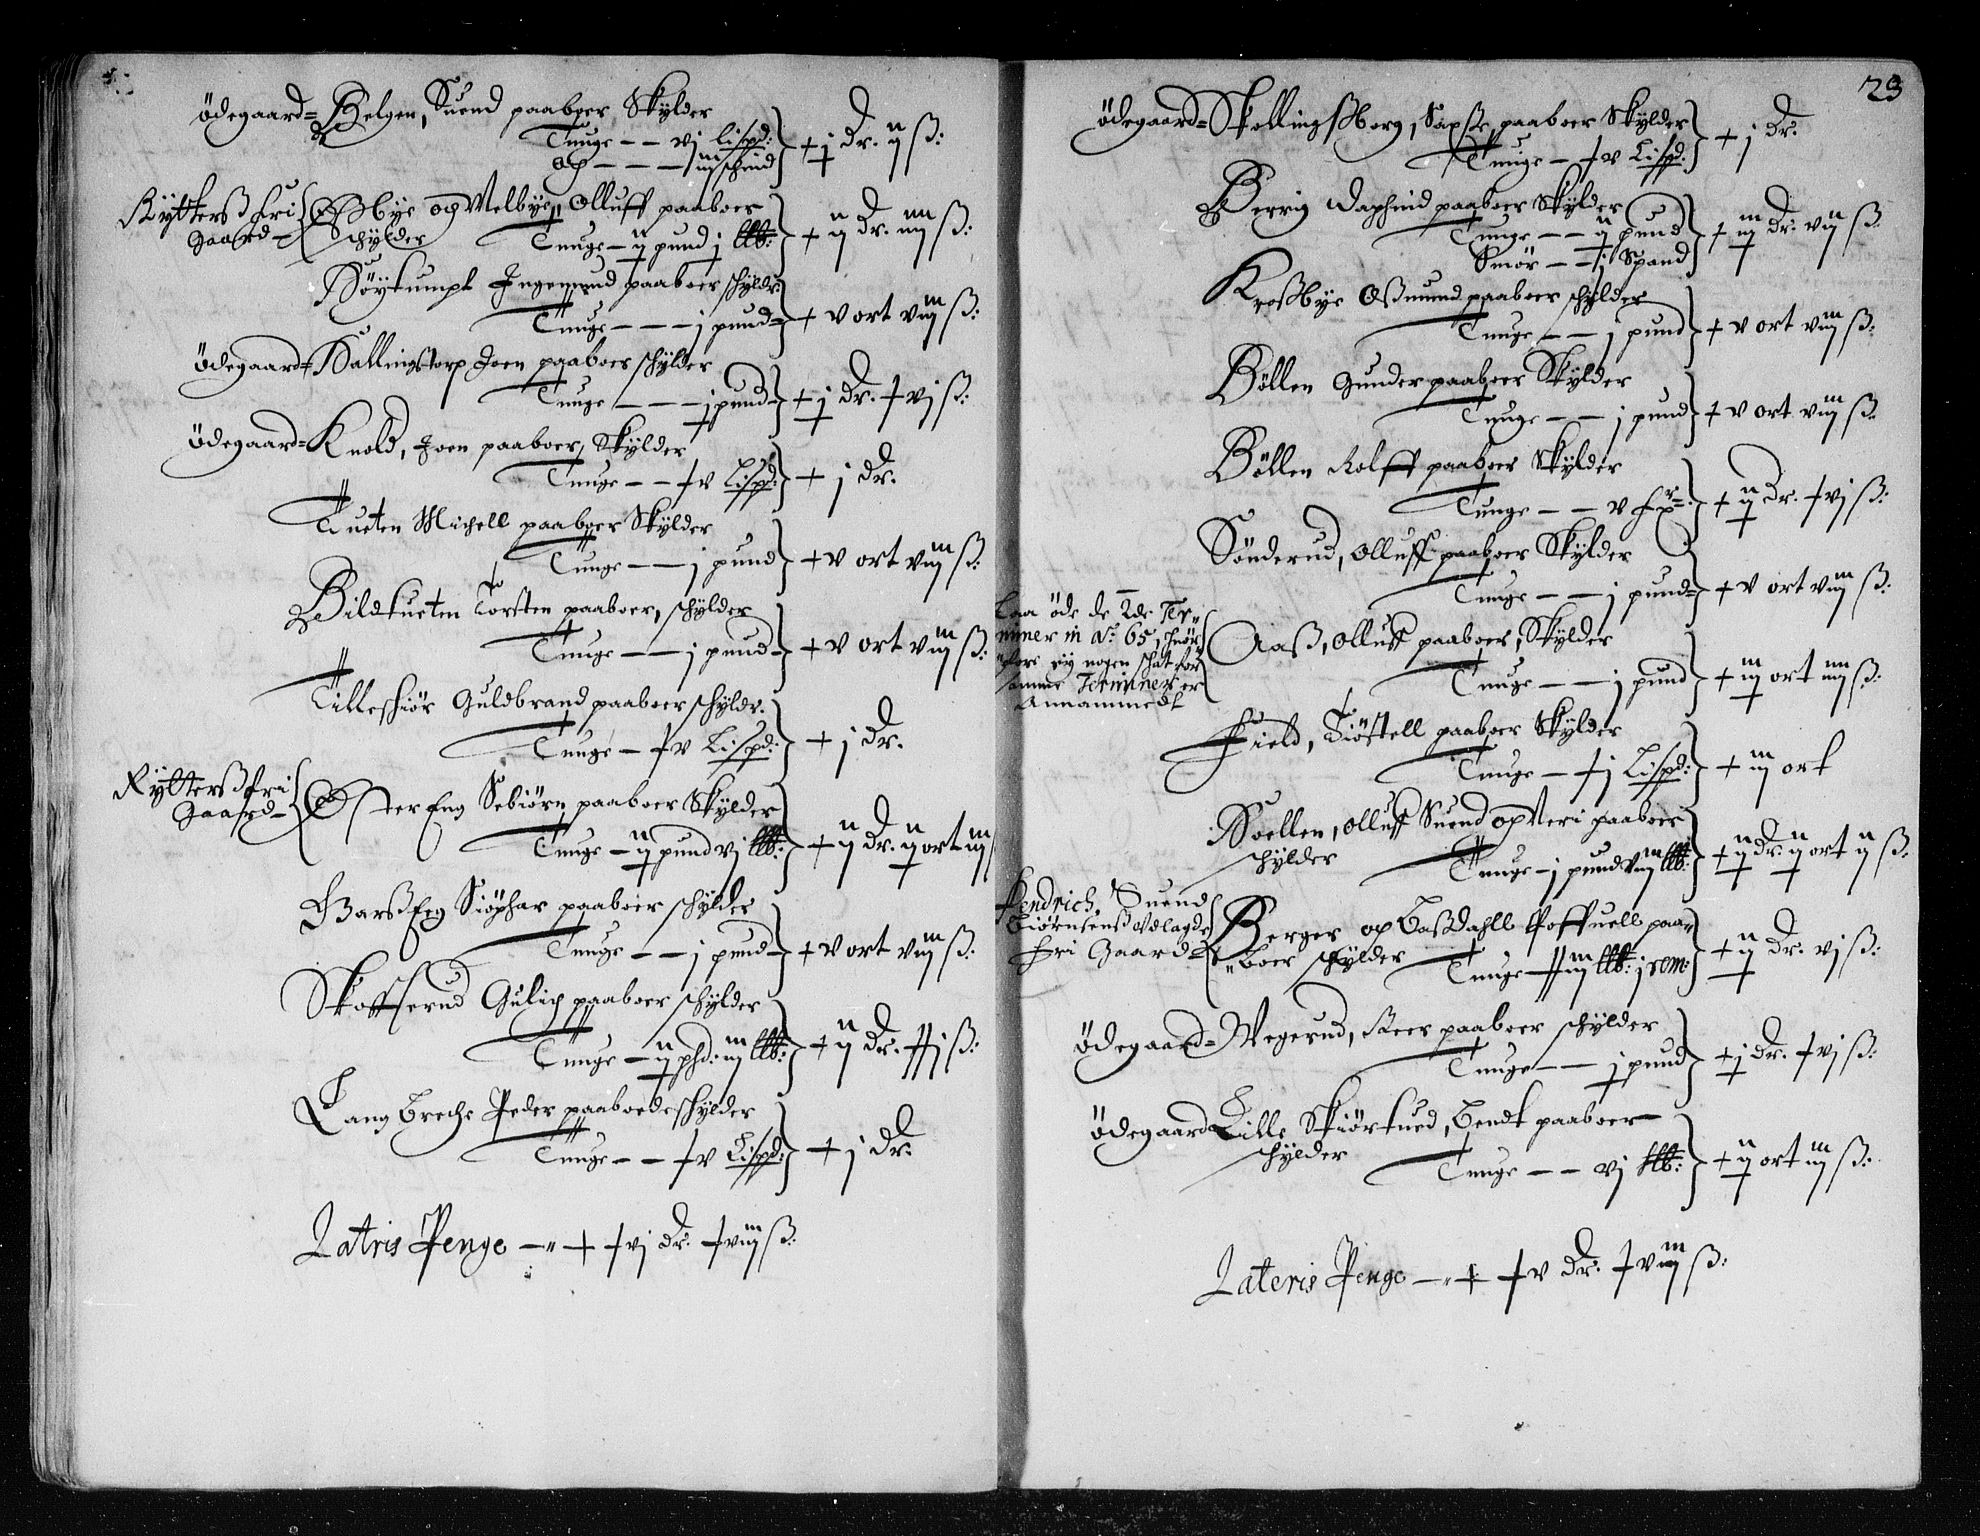 Ödegaard= Belgen, Suend paaboer Skylder
Tunge — — vj Lispd:
Och — — — iiij schind } + j Dr. ij ß:
Rytterß fri Gaard — { Oßbye og Melbye, Olluff paaboer
schylder Tunge — ij pund j Llb: } + ij Dr. iiij ß:
Ingemund paaboer schyldr:
Tunge — — — j pund — } + v ort viij ß:
Ödegaard= Kallingstorp Joen paaboer schylder
Tunge — — — j pund — } + j Dr. + vj ß:
Ödegaard= Knold, Joen paaboer, Skylder
Tunge — — + v Lispd: } + j Dr.
Tueten Michell paaboer Skylder
Tunge — — j pund } + v ort viij ß:
Bildtueten Torsten paaboer, schylder
Tunge — — j pund — } + v ort viij ß:
Lilleskiör Guldbrand paaboer schyldr.
Tunge — + v Lispd: } + j Dr.
Rytterß fri Gaard — { Öster Eng Sebiörn paaboer Skylder
Tunge — ij pund vj Llb: } + ij Dr. ij ort iij
Barß Eng Siöphar paaboer schylder
Tunge — — j pund — } + v ort viij ß:
Skofserud Gulich paaboer schylder
Tunge — ij phd: iij Llb: } + ij Dr. ++ j ß:
Lang Breche Peder paaboede schylder
Tunge — — + v Lispd: } + j Dr.
Latris Penge — + + vj Dr. + viij ß:
23
Ödegaard= Skollingßberg, paaboer Skylder
Tunge — + v Lispd: } + j Dr.
Berrig Daphind paaboer Skylder
Tunge — — ij pund
Smör — — j Spand } + iij Dr. vij ß:
Kroßbye Oßmund paaboer schylder
Tunge — — j pund } + v ort viij ß:
Böllen Gunder paaboer Skylder
Tunge — — j pund } + v ort viij ß:
Böllen Rolff paaboer Skylder
Tunge — — v } + ij Dr. + vj ß:
Sönderud, Olluff paaboer Skylder
Tunge — — j pund= } + v ort viij ß:
Laa öde de 2de Ter-
miner in Ao 65,
fore ey nogen schat for
samme Terminer er
Annammedt
Aaß, Olluff paaboer, Skylder
Tunge — — j pund } + iij ort iiij ß:
Field, Tiöstell paaboer Skylder
Tunge — + j Lispd: } + iij ort
Soellen, Olluff Suend og Neri paaboer
schylder Tunge — j pund viij Llb: } + ij Dr. ij ort ij ß:
Hendrich Suend
Biörnsenß Ödlagde
fri Gaard=
Berger og Baßdahll Poffuell paa-
-boer schylder Tunge ++ iij Llb: j rem: } + ij Dr. vj ß:
Ödegaard= Wegerud, Reer paaboer schylder
Tunge — — j pund } + j Dr. + vj ß:
Ödegaard Lille Skiörtued, Bendt paaboer
schylder Tunge — — vj Llb: } + ij ort iij ß:
Lateris Penge — + + v Dr. + viij ß: